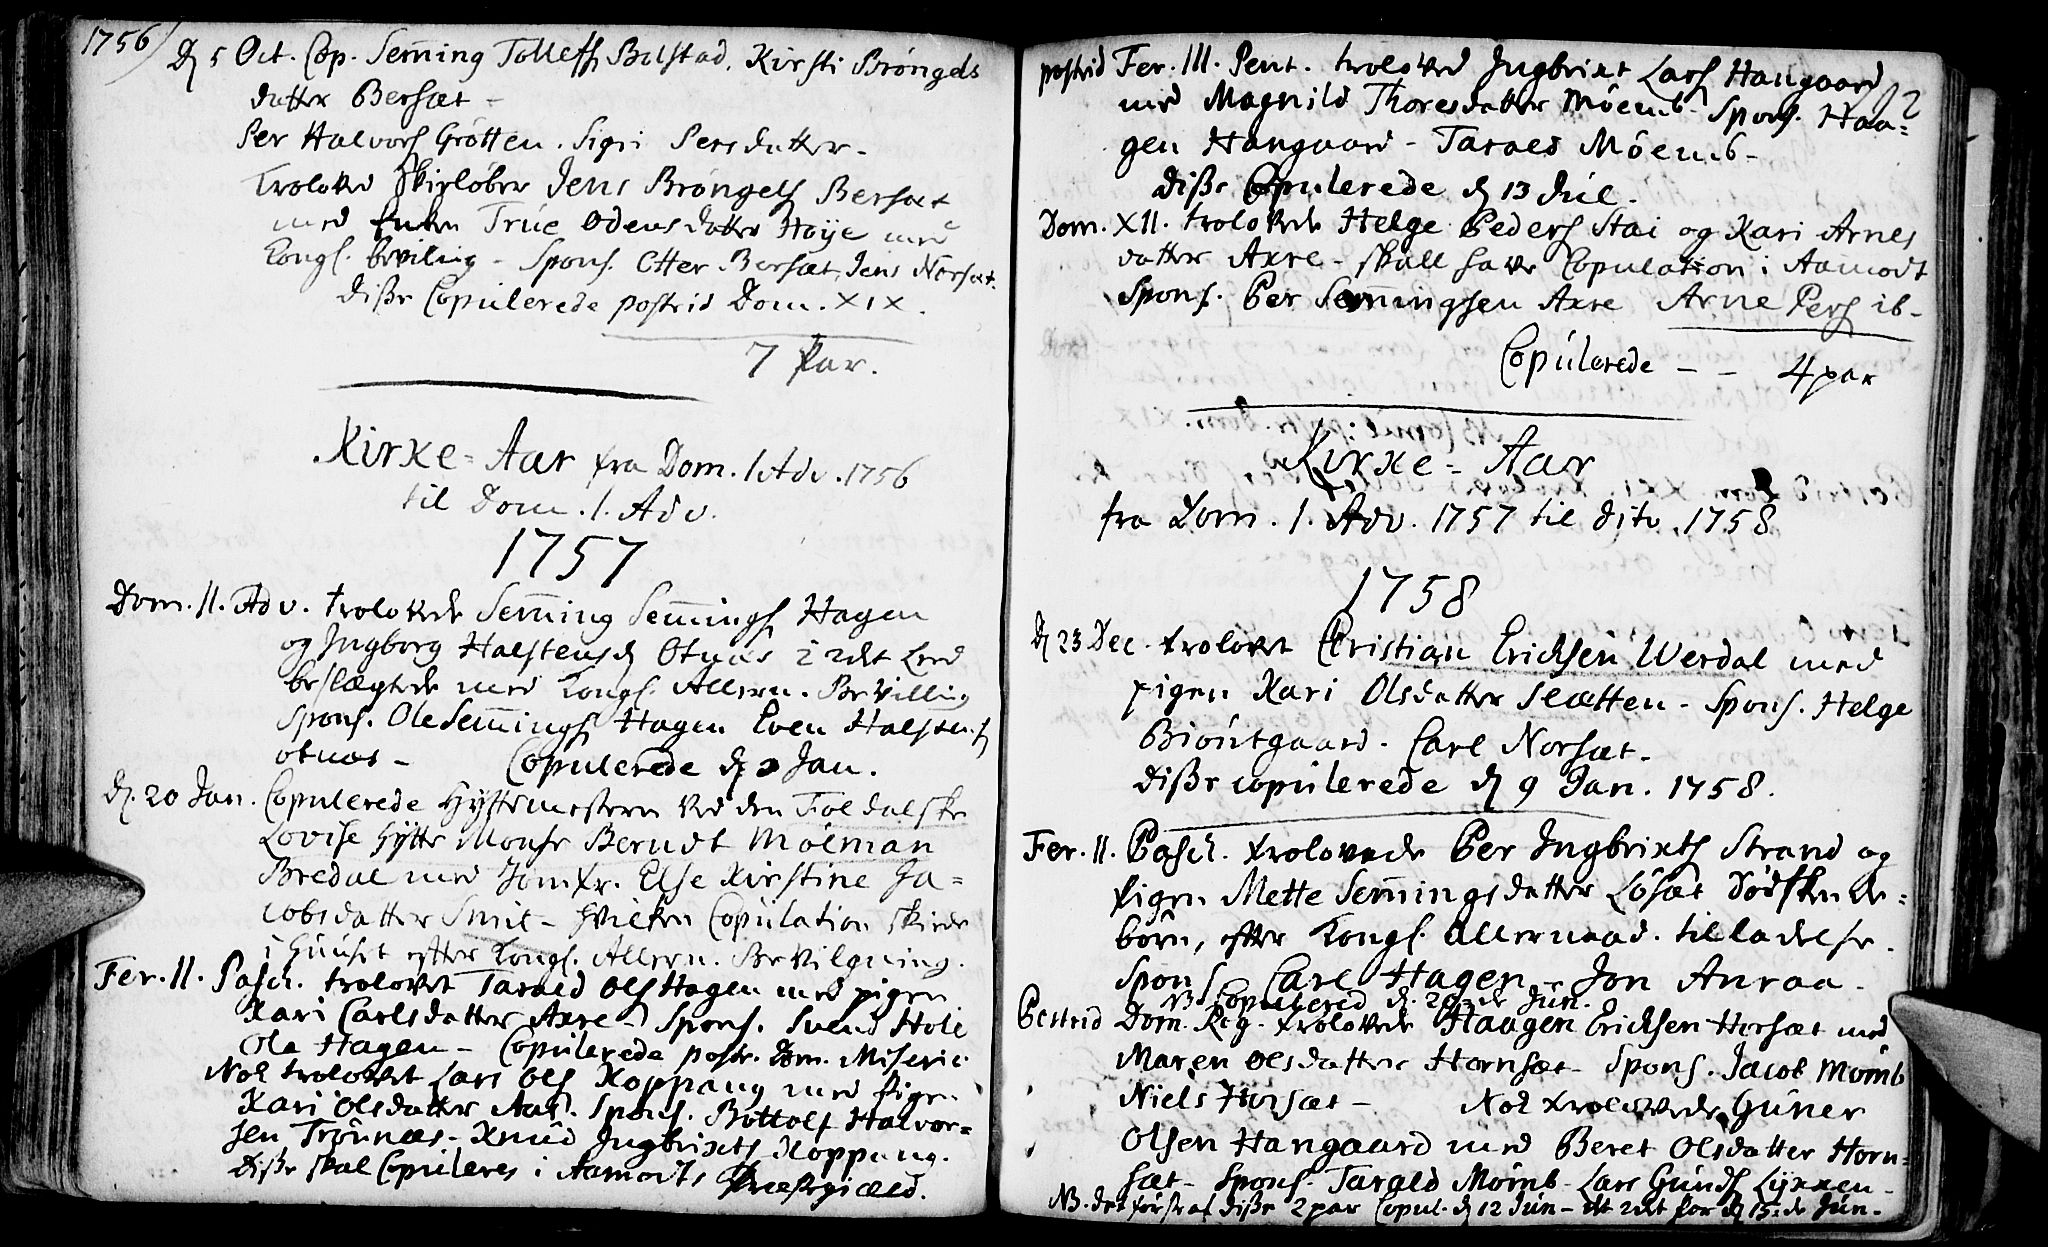 1756
D 5 Oct. Cop. Semming Tollefs Bolstad, Kirsti Bröngels
datter Bersæt -
Per Halvors Grötten. Sigri Persdatter.
Trolovd Skirløber Jens Bröngels Bersæt
med Enken True Odensdatter Høye med
Kongl. beviling - Spons. Otter Bersæt, Jens Norsæt.
Disse Copulerede postrid Dom. XIX.
7 Par.
Kirke-Aar fra Dom. 1 Adv. 1756
til Dom. 1. Adv.
1757
Dom. II. Adv. trolovede Semming Semmings Hagen
og Ingborg Halstensd Otnes i 2det Leed
beslægtede med Kongl. Allern. Bevilling
Spons. Ole Semmings Hagen Even Halstens
otnæs - Copulerede d Jan.
d. 20 Jan. Copulerede Hyttemesteren ved den Foldalske
Lovise Hytte Monsr Berndt Möeman
Bredal med Jomfr. Else Kirstine Ja=
cobsdatter Smit - hvilken Copulation skeede
i Huuset efter Kongl. Allern. Bevilgning.
Fer. II. Pasch. trolovet Tarald Ols Hagen med pigen
Kari Carlsdatter Axre - Spons. Svend Hole
Ole Hagen - Copulerede postr. Dom. Miseric:
Nok trolovet Lars Ols Koppang med Pigen
Kari Olsdatter Aas. Spons. Bottolf Halvor=
sen Trönnæs - Knud Ingbrixts Koppang.
Disse skal Copuleres i Aamodts Præstegield.
12
postrid Fer. III. Pent. troloved Ingbrixt Lars Hangaard
med Magnild Thoresdatter Möemb Spons. Haa=
gen Hangaard - Taraed Möemb -
Disse Copulerede d 13 Jul.
Dom. XII. trolovede Helge Peders Stai og Kari Arnes
datter Axre - skall have Copulation i Aamodt
Spons. Per Semmingsen Axre Arne Pers ib -
Copulerede - - 4 par
Kirke-Aar
fra Dom. 1. Adv. 1757 til dito 1758
1758
D 23 Dec. trolovet Christian Ericksen Werdal med
pigen Kari Olsdatter Slætten - Spons. Helge
Biöntgaard. Carl Norsæt.
Disse copulerede d 9 Jan. 1758.
Fer. II. Pasch. trolovede Per Ingbrixts Strand og
pigen Mette Semmingsdatter Lösæt Södsken be=
börn, efter Kongl. allernaad. tilladelse.
Spons. Carl Hagen Jon Anraa.
NB Copulered d. 20de Jun.
Postrid Dom. Rog. trolovede Haagen Ericksen Horsæt med
Maren Olsdatter Hornsæt - Spons. Jacob Mömb
Niels Horsæt - Nok trolovede Guner
Olsen Hangaard med Beret Olsdatter Horn=
sæt - Spons. Tarald Mömb - Lars Gunds Lykken -
NB. det første af disse 2 par Copul. d 12 Jun - det 2det par d 15de Jun.